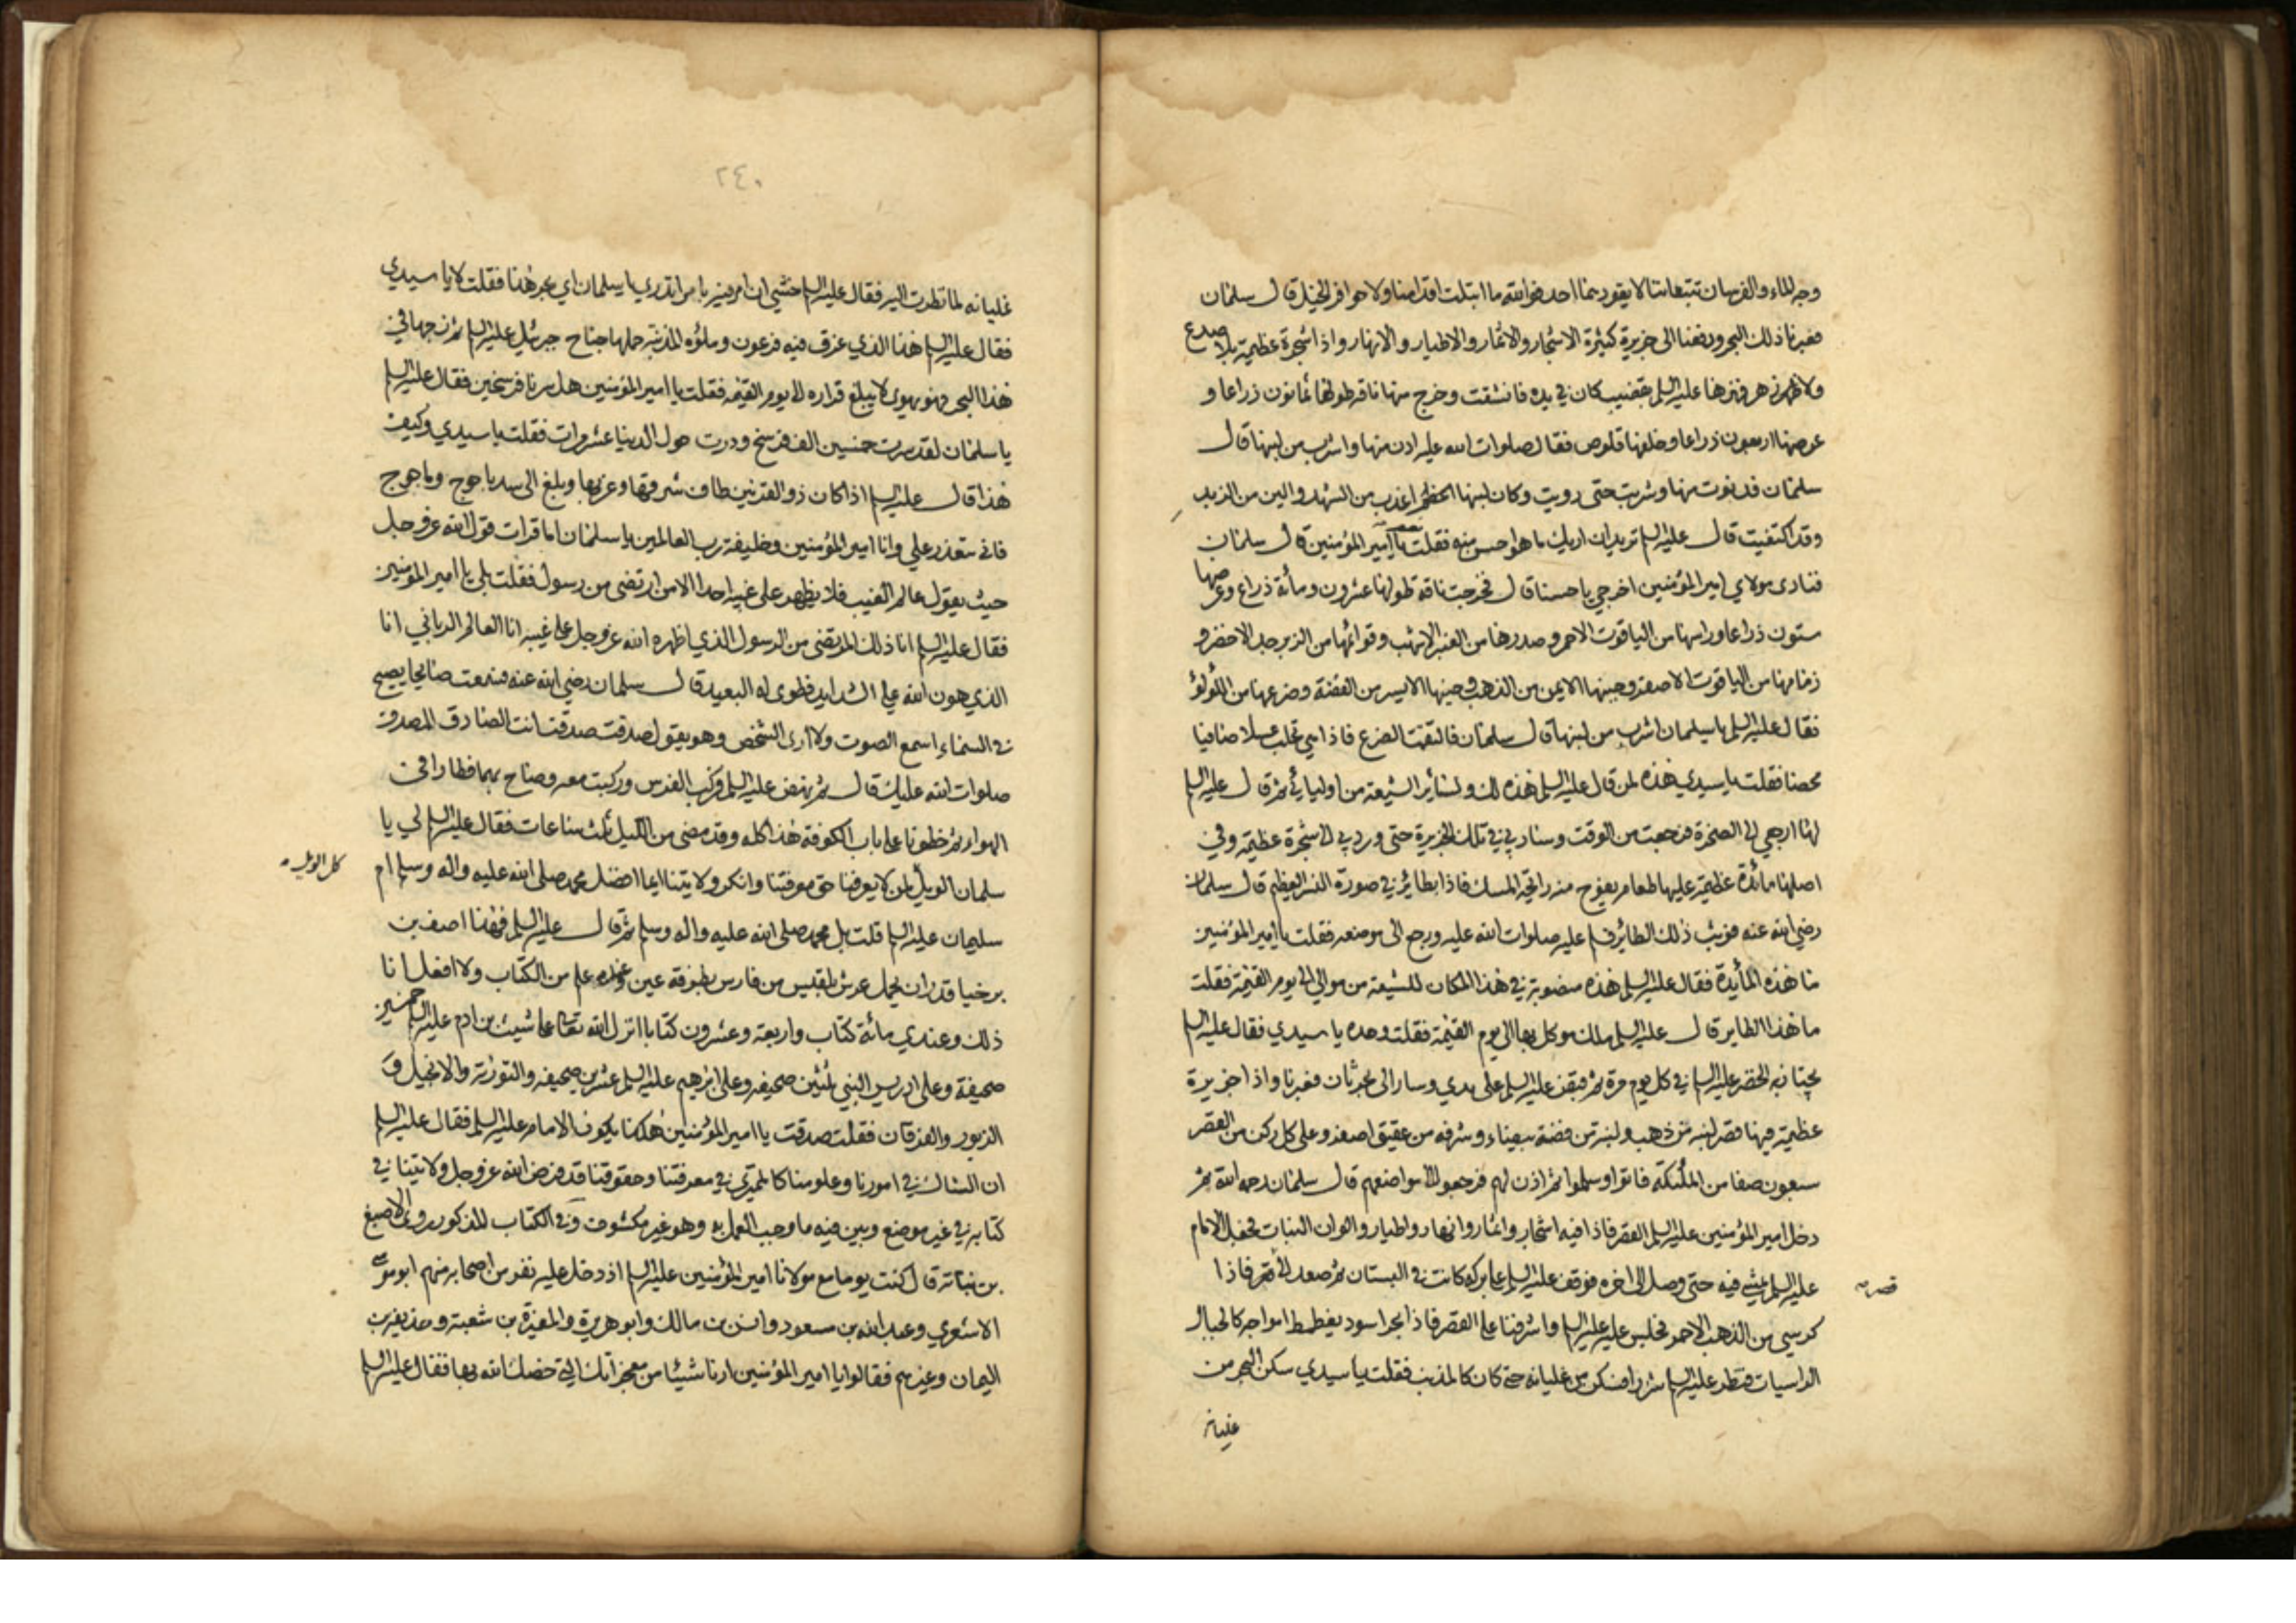 وجه الماء والفرسان تتبعاننا لا يقودهما احد فوالله ما ابتلت اقدامنا ولا حوافر الخيل قال سلمان
فعبرنا ذلك البحر ودفعنا الى جزيرة كثيرة الاشجار والاثمار والاطيار والانهار واذا شجرة عظيمة بلا صدع
ولا زهر فهزها عليه السلم بقضيب كان في يده فانشقت وخرج منها ناقة طولها ثمانون ذراعا و
عرضها اربعون ذراعا وخلفها قلوص فقال صلوات الله عليه ادن منها واشرب من لبنها قال
سلمان فدنوت منها وشربت حتى رويت وكان لبنها اعذب من الشهد والين من الزبد
وقد اكتفيت قال عليه السلم تريد ان اريك ما هو احسن منه فقلت نعم يا امير المؤمنين قال سلمان
فنادى مولاي امير المؤمنين اخرجي يا حسنا قال فخرجت ناقة طولها عشرون ومائة ذراع وعرضها
ستون ذراعا وراسها من الياقوت الاحمر وصدرها من العنبر الاشهب وقوائمها من الزبرجد الاخضر و
زمامها من الياقوت الاصفر وجنبها الايمن من الذهب وجنبها الايسر من الفضة وضرعها من اللؤلؤ
فقال عليه السلم يا سلمان اشرب من لبنها قال سلمان فالتقمت الضرع فاذا هي تحلب عسلا صافيا
محضا فقلت يا سيدي هذه لمن قال عليه السلم هذه لك ولسائر الشيعة من اوليائي ثم قال عليه السلم
لها ارجعي الى الصخرة فرجعت من الوقت وسار بي في تلك الجزيرة حتى ورد بي الى شجرة عظيمة وفي
اصلها مائدة عظيمة عليها طعام يفوح منه رائحة المسك فاذا بطائر في صورة النسر العظيم قال سلمان
رضي الله عنه فوثب ذلك الطائر فسلم عليه صلوات الله عليه ورجع الى موضعه فقلت يا امير المؤمنين
ما هذه المائدة فقال عليه السلم هذه منصوبة في هذا المكان للشيعة من موالي الى يوم القيمة فقلت
ما هذا الطاير قال عليه السلم ملك موكل بها الى يوم القيمة فقلت وحده يا سيدي فقال عليه السلم
يجتاز به الخضر عليه السلم في كل يوم مرة ثم قبض عليه السلم على يدي وسار الى بحر ثان فعبرنا واذا جزيرة
عظيمة فيها قصر لبنة من ذهب ولبنة من فضة بيضاء وشرفه من عقيق اصفر وعلى كل ركن من القصر
سبعون صفا من الملئكة فاتوا وسلموا ثم اذن لهم فرجعوا الى مواضعهم قال سلمان رحمه الله ثم
دخل امير المؤمنين عليه السلم القصر فاذا فيه اشجار واثمار وانهار واطيار والوان النبات فجعل الامام
عليه السلم يمشي فيه حتى وصل الى اخره فوقف عليه السلم على بركة كانت في البستان ثم صعد الى قصر فاذا
قصره
كرسي من الذهب الاحمر فجلس عليه عليه السلم واشرفنا على القصر فاذا بحر اسود يغطمط امواجه كالجبال
الراسيات فنظر عليه السلم شزرا فسكن من غليانه حتى كان كالمذنب فقلت يا سيدي سكن البحر من
غليانه
٢٤٠
غليانه لما نظرت اليه فقال عليه السلم خشي ان امر فيه بامر اتدري يا سلمان اي بحر هذا فقلت لا يا سيدي
فقال عليه السلم هذا الذي غرق فيه فرعون وملؤه المذنبة حملها جناح جبرئيل عليه السلم ثم زجها في
هذا البحر فهو يهوي لا يبلغ قراره الى يوم القيمة فقلت يا امير المؤمنين هل سرنا فرسخين فقال عليه السلم
يا سلمان لقد سرت خمسين الف فرسخ ودرت حول الدنيا عشر مرات فقلت يا سيدي وكيف
هذا قال عليه السلم اذا كان ذو القرنين طاف شرقها وغربها وبلغ الى سد ياجوج وماجوج
فاني يتعذر علي وانا امير المؤمنين وخليفة رب العالمين يا سلمان اما قرات قول الله عز وجل
حيث يقول عالم الغيب فلا يظهر على غيبه احدا الا من ارتضى من رسول فقلت بلى يا امير المؤمنين
فقال عليه السلم انا ذلك المرتضى من الرسول الذي اظهره الله عز وجل على غيبه انا العالم الرباني انا
الذي هون الله علي الشدايد فطوى له البعيد قال سلمان رضي الله عنه فسمعت صائحا يصيح
في السماء اسمع الصوت ولا ارى الشخص وهو يقول صدقت صدقت انت الصادق المصدق
صلوات الله عليك قال ثم نهض عليه السلم فركب الفرس وركبت معه وصاح بهما فطارا في
الهواء ثم خطونا على باب الكوفة هذا كله وقد مضى من الليل ثلث ساعات فقال عليه السلم لي يا
سلمان الويل لمن لا يعرفنا حق معرفتنا وانكر ولايتنا ايما افضل محمد صلى الله عليه واله وسلم ام
كل الويل
سليمان عليه السلم قلت بل محمد صلى الله عليه واله وسلم ثم قال عليه السلم فهذا اصف بن
برخيا قدر ان يحمل عرش بلقيس من فارس بطرفة عين وعنده علم من الكتاب ولا افعل انا
ذلك وعندي مائة كتاب واربعة وعشرون كتابا انزل الله تعالى على شيث بن ادم عليه السلم خمسين
صحيفة وعلى ادريس النبي ثلثين صحيفة وعلى ابرهيم عليه السلم عشرين صحيفة والتورية والانجيل و
الزبور والفرقان فقلت صدقت يا امير المؤمنين هكذا يكون الامام عليه السلم فقال عليه السلم
ان الشاك في امورنا وعلومنا كالممتري في معرفتنا وحقوقنا قد فرض الله عز وجل ولايتنا في
كتابه في غير موضع وبين فيه ما وجب العمل به وهو غير مكشوف وفي الكتاب المذكور روى الاصبغ
بن نباتة قال كنت يوما مع مولانا امير المؤمنين عليه السلم اذ دخل عليه نفر من اصحابه منهم ابو موسى
الاشعري وعبد الله بن مسعود وانس بن مالك وابو هريرة والمغيرة بن شعبة وحذيفة بن
اليمان وغيرهم فقالوا يا امير المؤمنين ارنا شيئا من معجزاتك التي خصك الله بها فقال عليه السلم